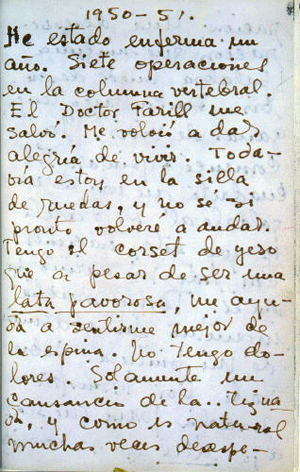 1950-51.
He estado enferma un
año. Siete operaciones
en la columna vertebral.
El Doctor Farill me
salvó. Me volvió a dar
alegría de vivir. Toda-
vía estoy en la silla
de ruedas, y no sé si
pronto volveré a andar.
Tengo el corset de yeso
que a pesar de ser una
lata pavorosa, me ayu-
da a sentirme mejor de
la espina. No tengo do-
lores. Solamente un
cansancio de la..
y como es natural
muchas veces desespe-